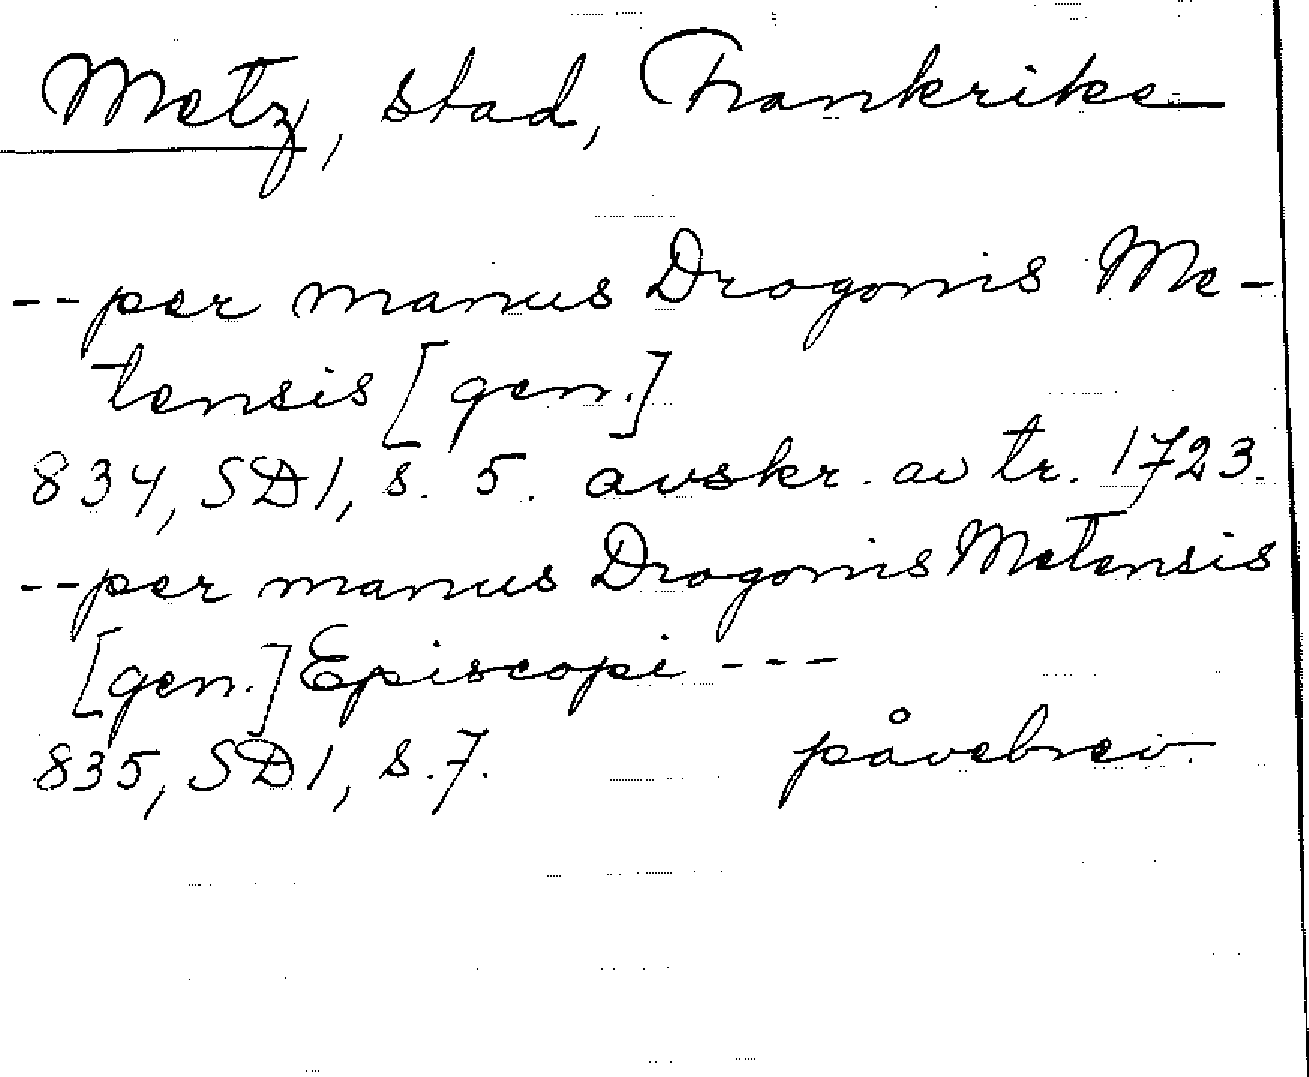 Metz, stad, Frankrike
-- per manus Drogonis Me-
tensis [gen.]
834, SD1, s. 5. avskr. av tr. 1723.
-- per manus Drogonis Metensis
[gen.] Episcopi ---
835, SD1, s. 7. påvebrev.